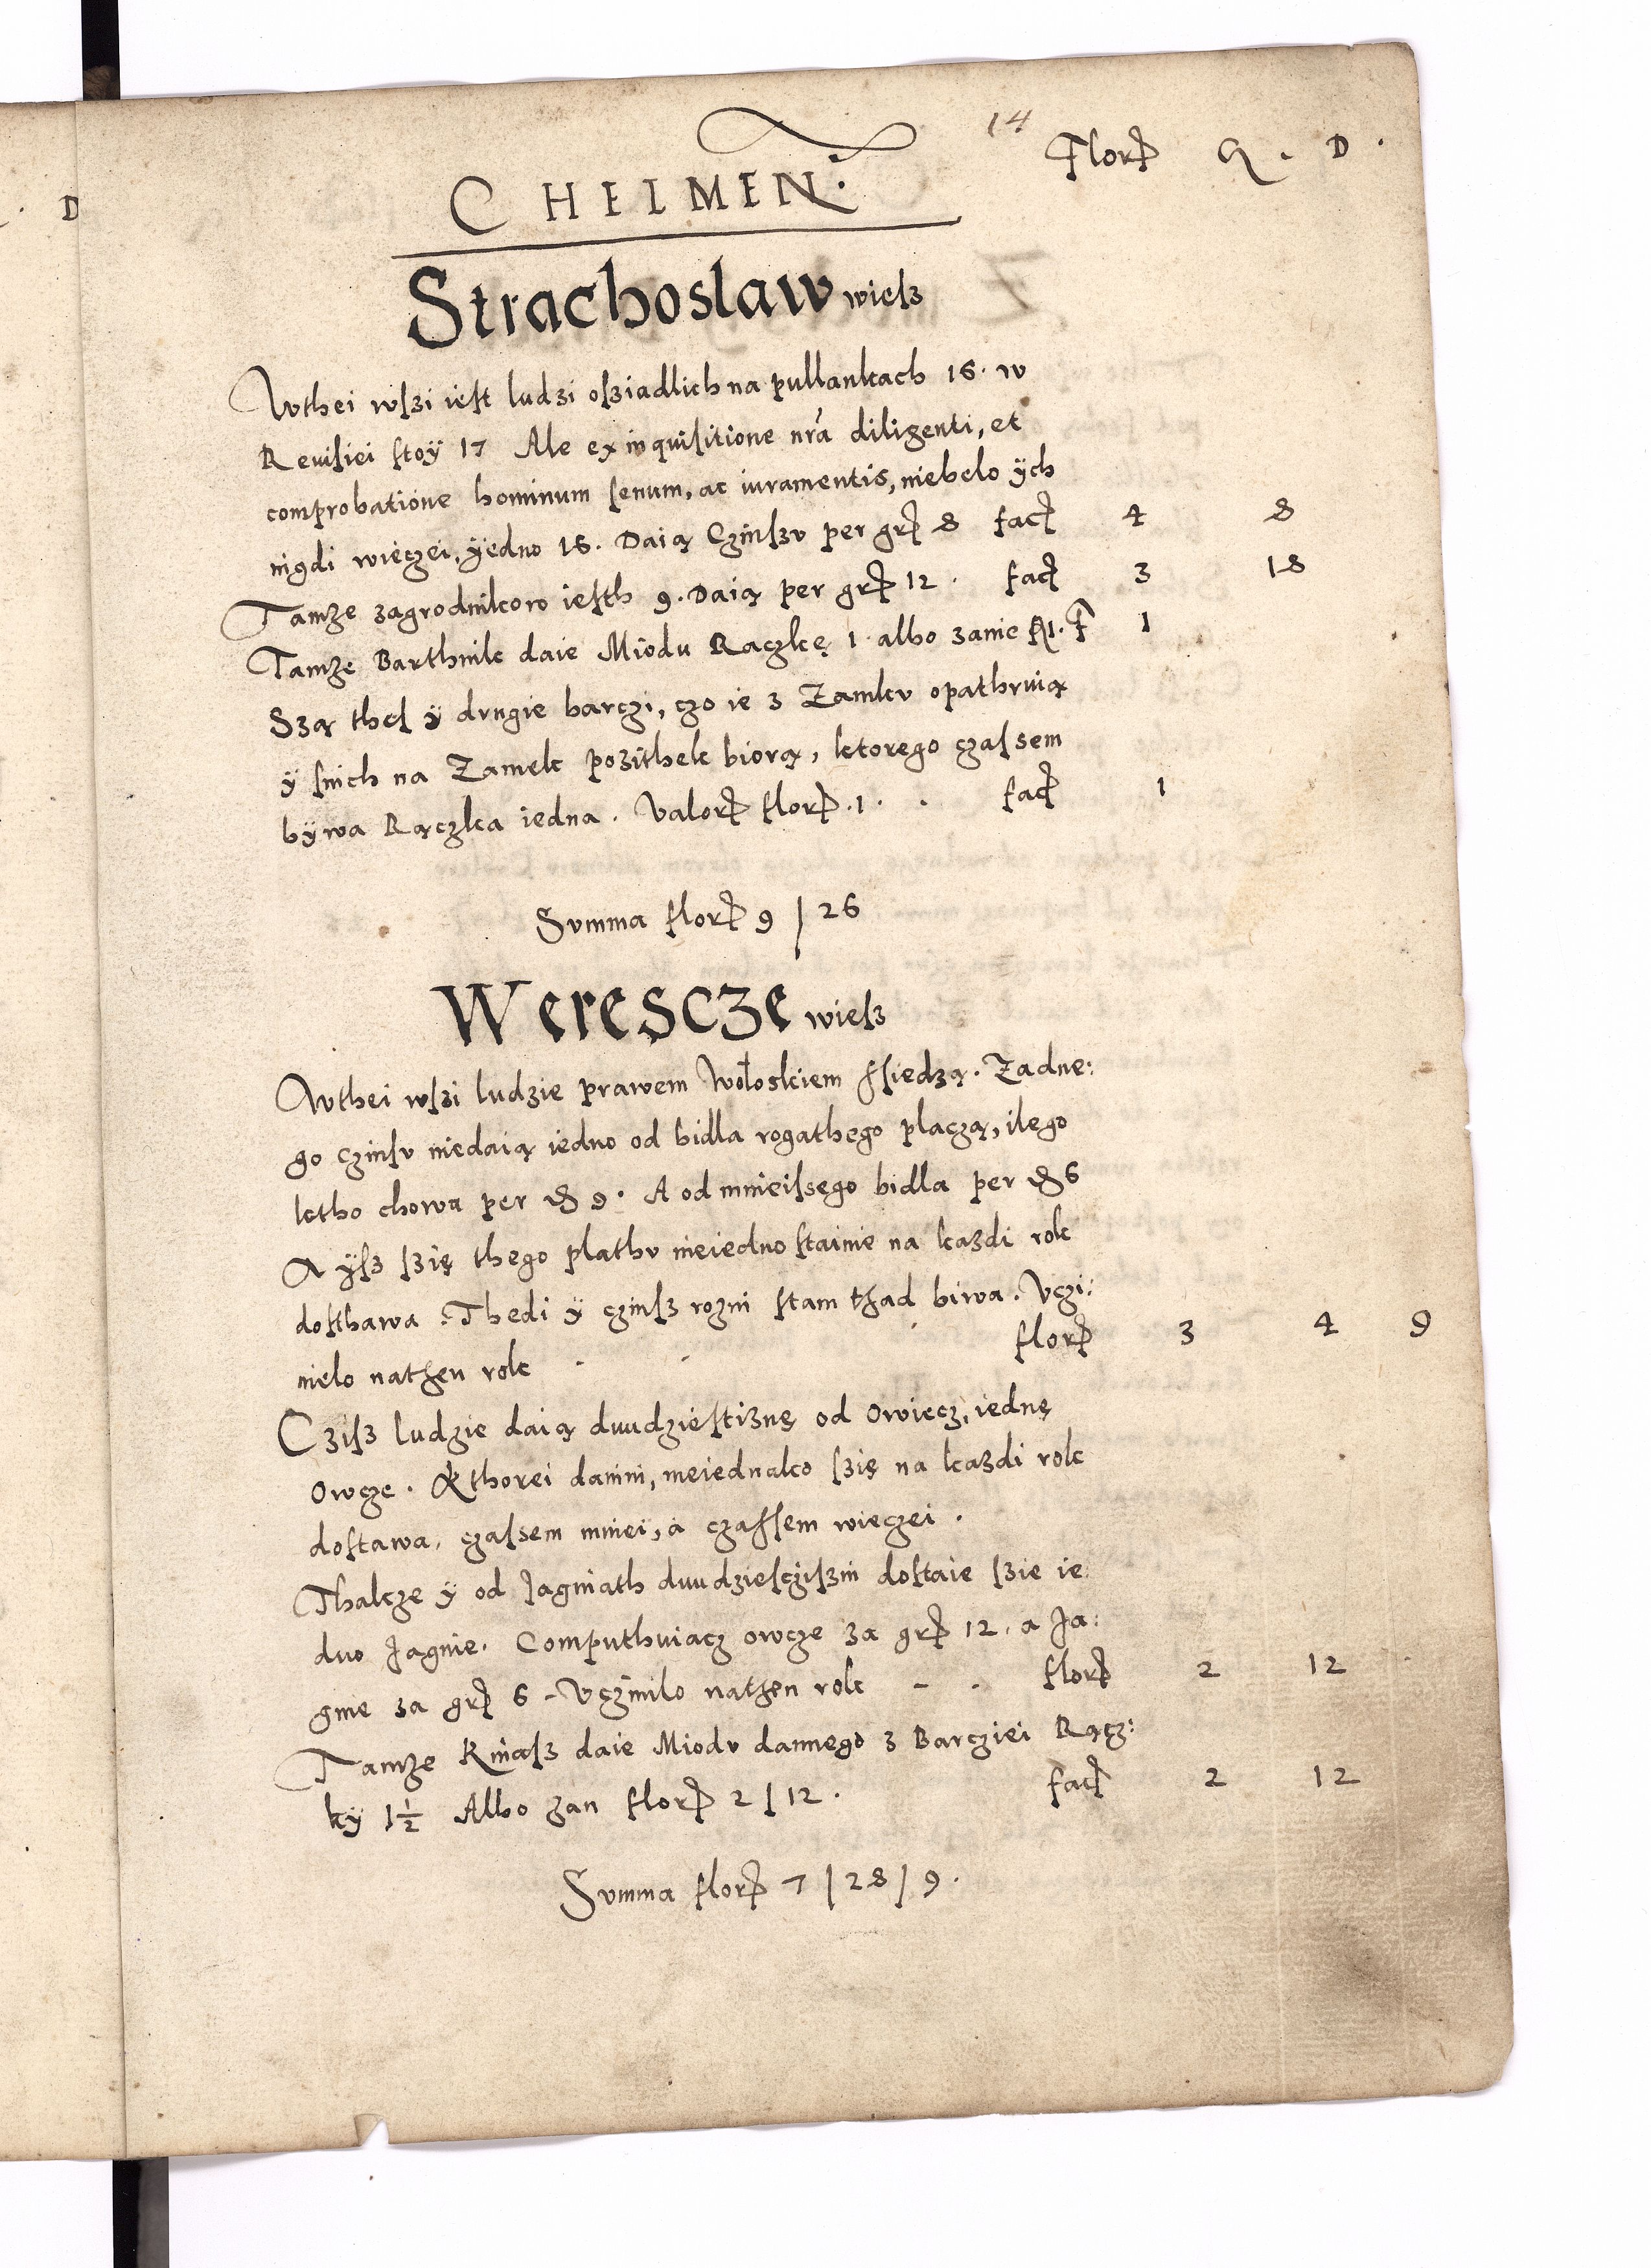 14
Flor G . D .
CHELMEN.
Strachoslaw wiesz
Wthei wszi iest ludzi osziadlich na pullankach 16. w
Reuisiei stoÿ 17 Ale ex inquisitione nra diligenti, et
comprobatione hominum senum, ac iuramentis, niebelo ÿch
nigdi wieczei, ÿedno 16. Daią Czinszv per gr 8 fac 4 8
Tamze zagrodnikow iesth 9. Daią per gr 12 . fac 3 18
Tamze Barthnik daie Miodu Raczkę 1 albo zanie fl. 1. F 1
Szą thes ÿ drugie barczi, czo ie z Zamku opathruią
ÿ snich na Zamek pozithek biorą, ktorego czassem
bÿwa Rączka iedna . Valor flor . 1 . . fac 1
Summa flor 9 | 26
Werescze wiesz
Wthei wszi ludzie prawem Wołoskiem ssiedzą. Zadne:
go czinsv niedaią iedno od bidla rogathego placzą, ilego
ktho chowa per d 9. A od mnieissego bidla per d 6
A ÿsz szię thego plathv nieiednostainie na kazdi rok
dosthawa. Thedi ÿ czinsz rozni stamthad biwa. Vczi:
nielo nathen rok . . flor 3 4 9
Czisz ludzie daią dwudziestiznę od owiecz, iednę
owcze . Kthorei danini, nieiednako szię na kazdi rok
dostawa, czassem mniei, a czassem wieczei .
Thakze ÿ od Jagniath dwudziescziszni dostaie szie ie:
dno Jagnie. Computhuiacz owcze za gr 12, a Ja:
gnie za gr 6 - Vczinilo nathen rok - . flor 2 12
Tamze Kniasz daie Miodv dannego z Barcziei Rącz:
kÿ 1½ Albo zan flor 2 | 12 . fac 2 12
Summa flor 7 | 28 | 9 .